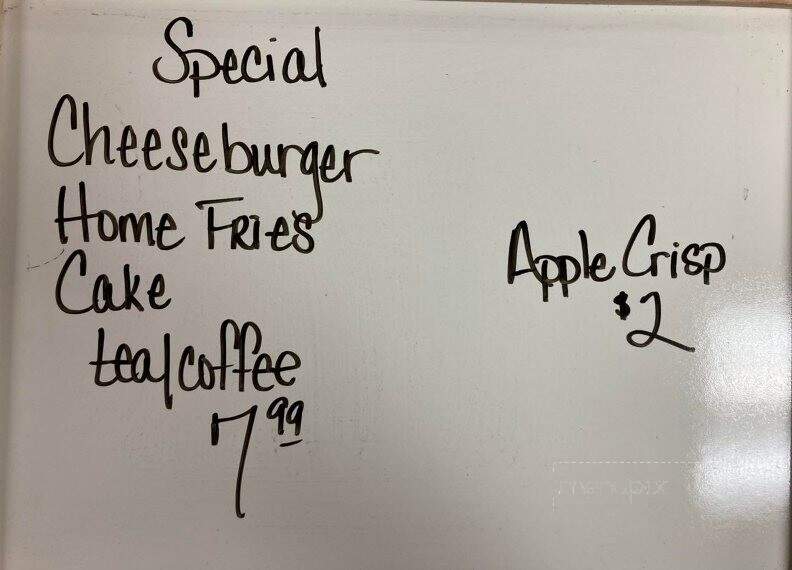 Special
Cheeseburger
Home FRies
Cake
tea/coffee
7.99
Apple Crisp
$2